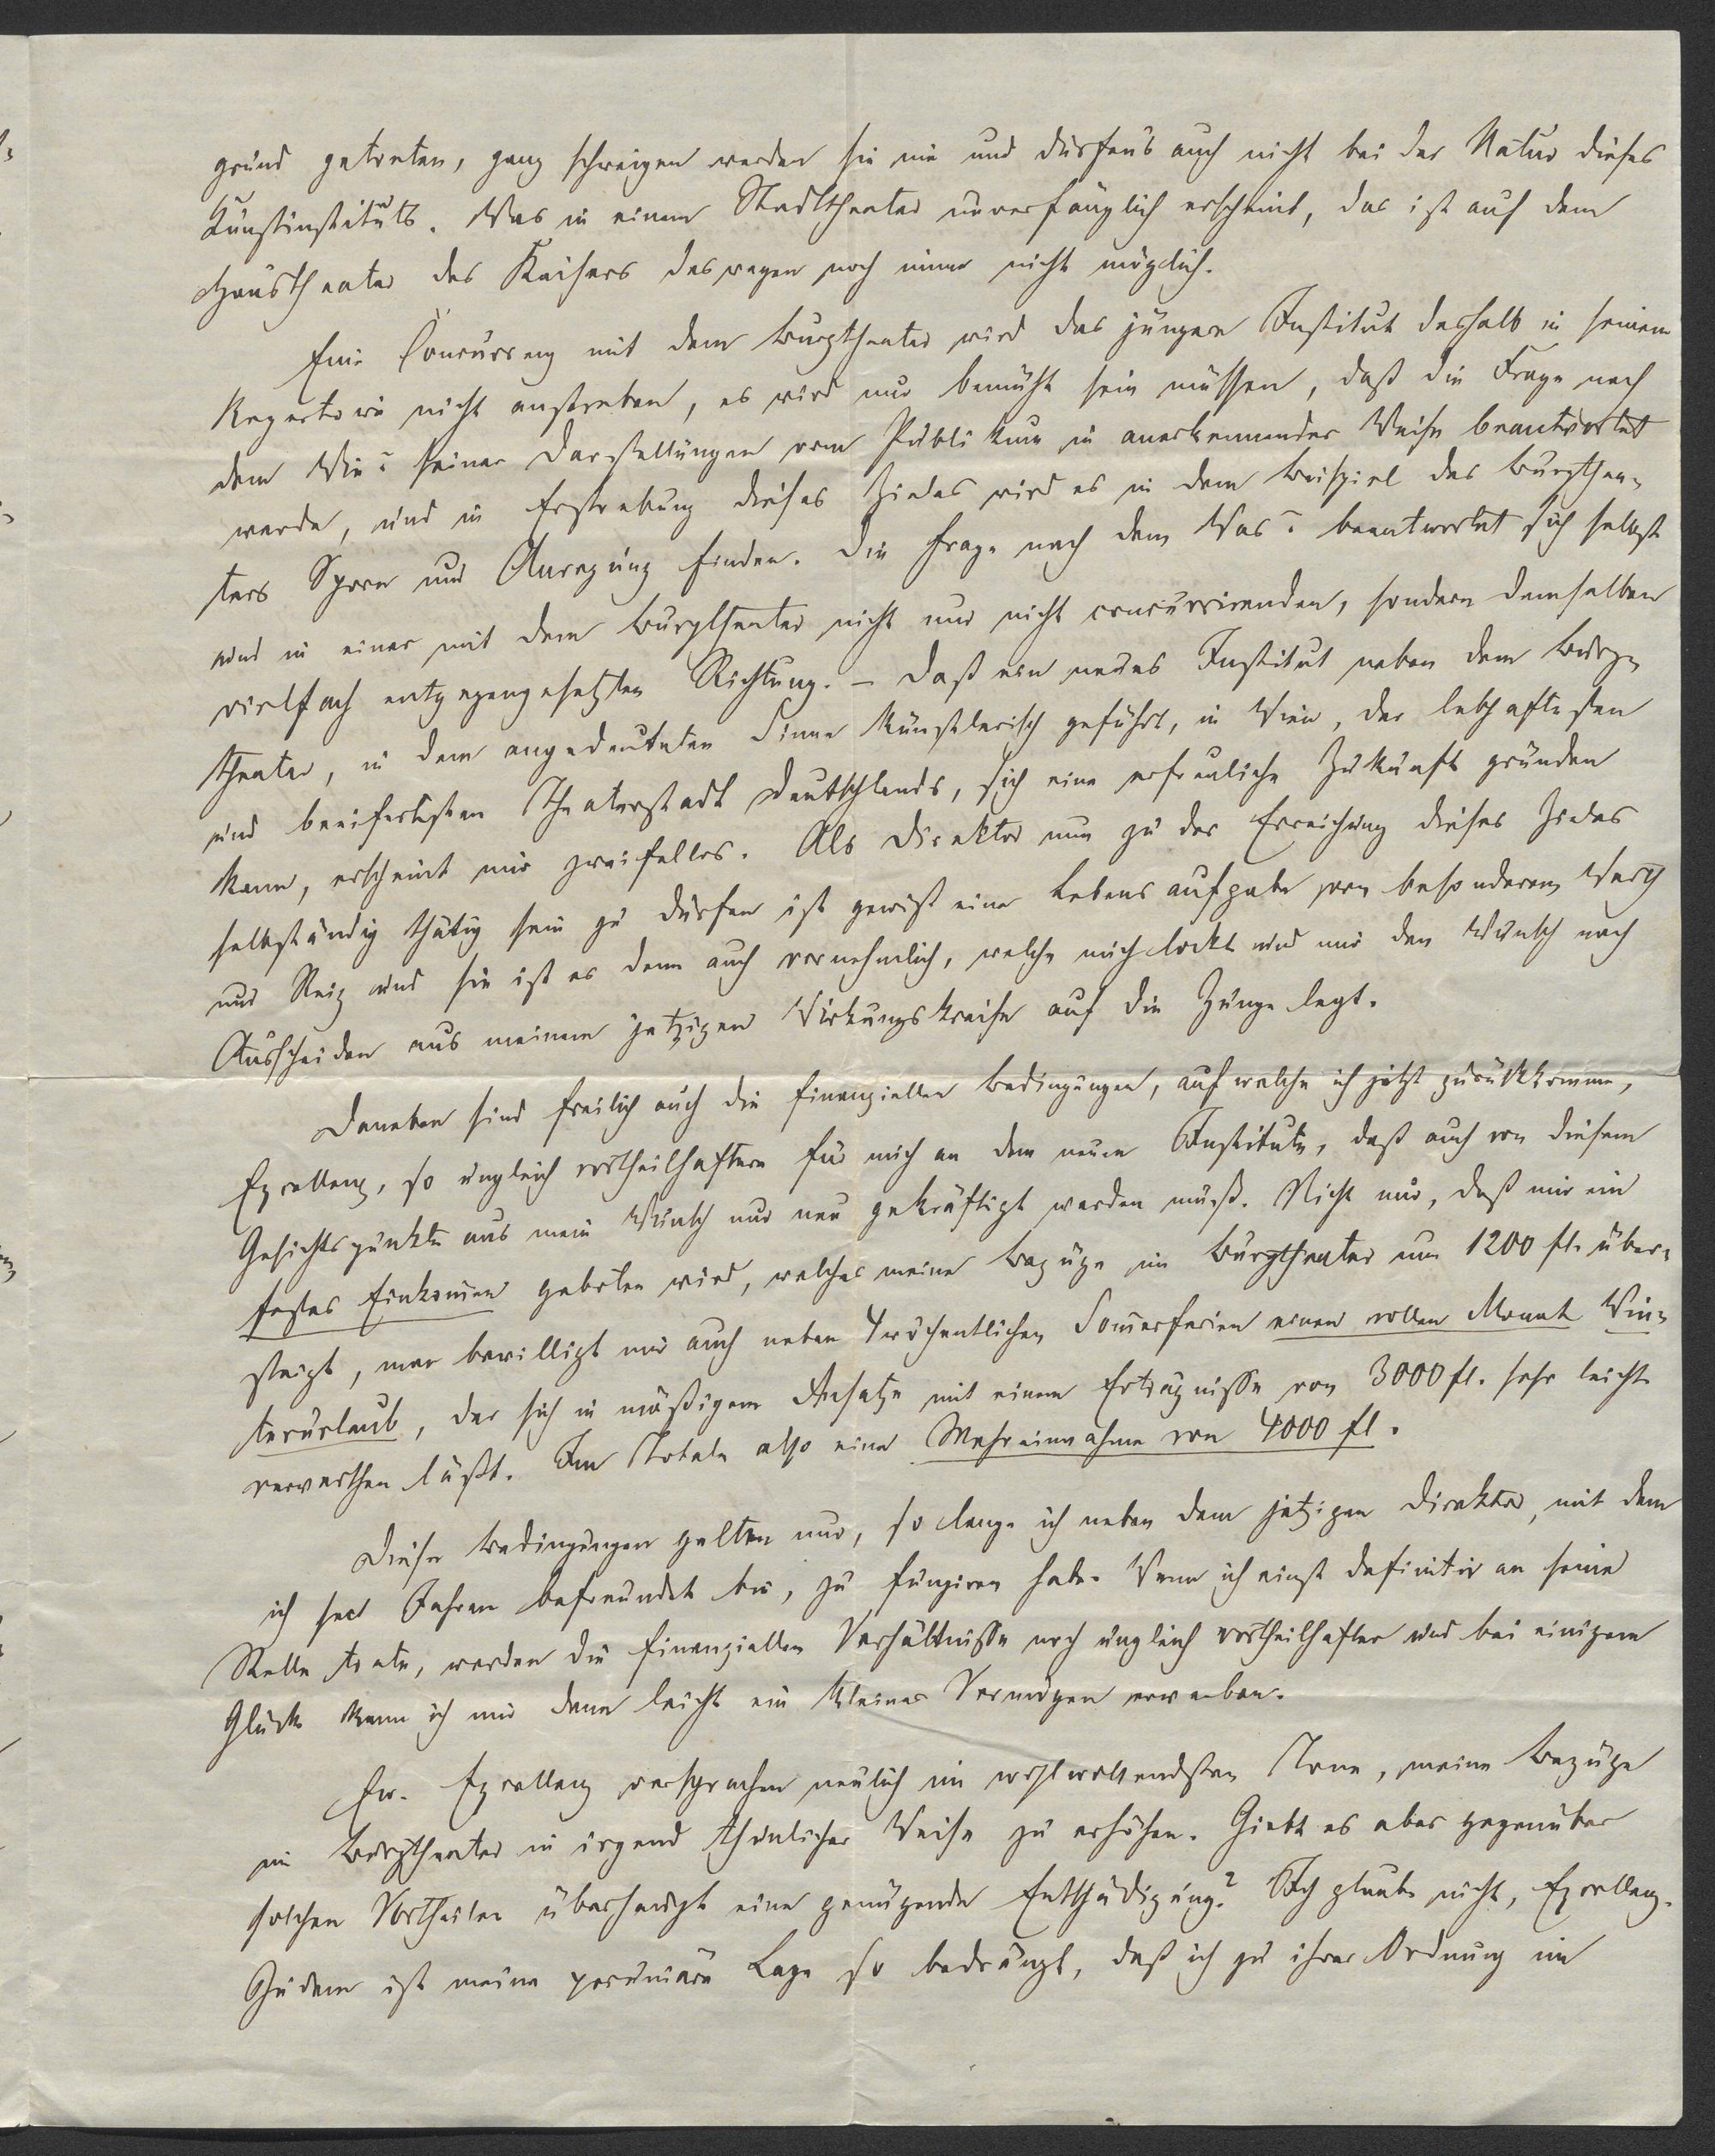 grund getreten, ganz schweigen werden sie nie und dürfens auch nicht bei der Natur dieses
Kunstinstituts. Was in einem Stadttheater unverfänglich erscheint, das ist auf dem
Haustheater des Kaisers deswegen noch immer nicht möglich.
Eine Concurrenz mit dem Burgtheater wird das jüngere Institut deshalb in seinem
Repertoire nicht anstreben, es wird nur bemüht sein müssen, daß die Frage nach
dem Wie? seiner Darstellungen vom Publikum in anerkennender Weise beantwortet
werde, und in Erstrebung dieses Zieles wird es in dem Beispiel des Burgthea-
ters Sporn und Anregung finden. Die Frage nach dem Was? beantwortet sich selbst
und in einer mit dem Burgtheater nicht nur nicht concurrirenden, sondern demselben
vielfach entgegengesetzten Richtung. – Daß ein neues Institut neben dem Burg-
theater, in dem angedeuteten Sinne künstlerisch geführt, in Wien, der lebhaftesten
und beeifertesten Theaterstadt Deutschlands, sich eine erfreuliche Zukunft gründen
kann, erscheint mir zweifellos. Als Direktor nun zu der Erreichung dieses Zieles
selbständig thätig sein zu dürfen ist gewiß eine Lebensaufgabe von besonderem Werth
und Reiz und sie ist es denn auch vornehmlich, welche mich lockt und mir den Wunsch nach
Ausscheiden aus meinem jetzigen Wirkungskreise auf die Zunge legt.
Daneben sind freilich auch die finanziellen Bedingungen, auf welche ich jetzt zurückkomme,
Excellenz, so ungleich vortheilhaftere für mich an dem neuen Institute, daß auch von diesem
Gesichtspunkte aus mein Wunsch nur neu gekräftigt werden muß. Nicht nur, daß mir ein
festes Einkommen geboten wird, welches meine Bezüge im Burgtheater um 1200 fl. über-
steigt, man bewilligt mir auch neben 4wöchentlichen Sommerferien einen vollen Monat Win-
terurlaub, der sich in mäßigem Ansatze mit einem Erträgnisse von 3000 fl. sehr leicht
verwerthen läßt. Im Totale also eine Mehreinnahme von 4000 fl.
Diese Bedingungen gelten nur, so lange ich neben dem jetzigen Direktor, mit dem
ich seit Jahren befreundet bin, zu fungiren habe. Wenn ich einst definitiv an seine
Stelle trete, werden die finanziellen Verhältnisse noch ungleich vortheilhafter und bei einigem
Glück kann ich mir dann leicht ein kleines Vermögen erwerben.
Ew. Excellenz versprachen neulich im wohlwollendsten Tone, meine Bezüge
im Burgtheater in irgend thunlicher Weise zu erhöhen. Giebt es aber gegenüber
solchen Vortheilen überhaupt eine genügende Entschädigung? Ich glaube nicht, Excellenz.
Zudem ist meine pecuniäre Lage so bedrängt, daß ich zu ihrer Ordnung im